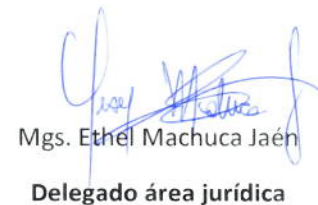 Mgs. Ethel Machuca Jaén
Delegado área jurídica